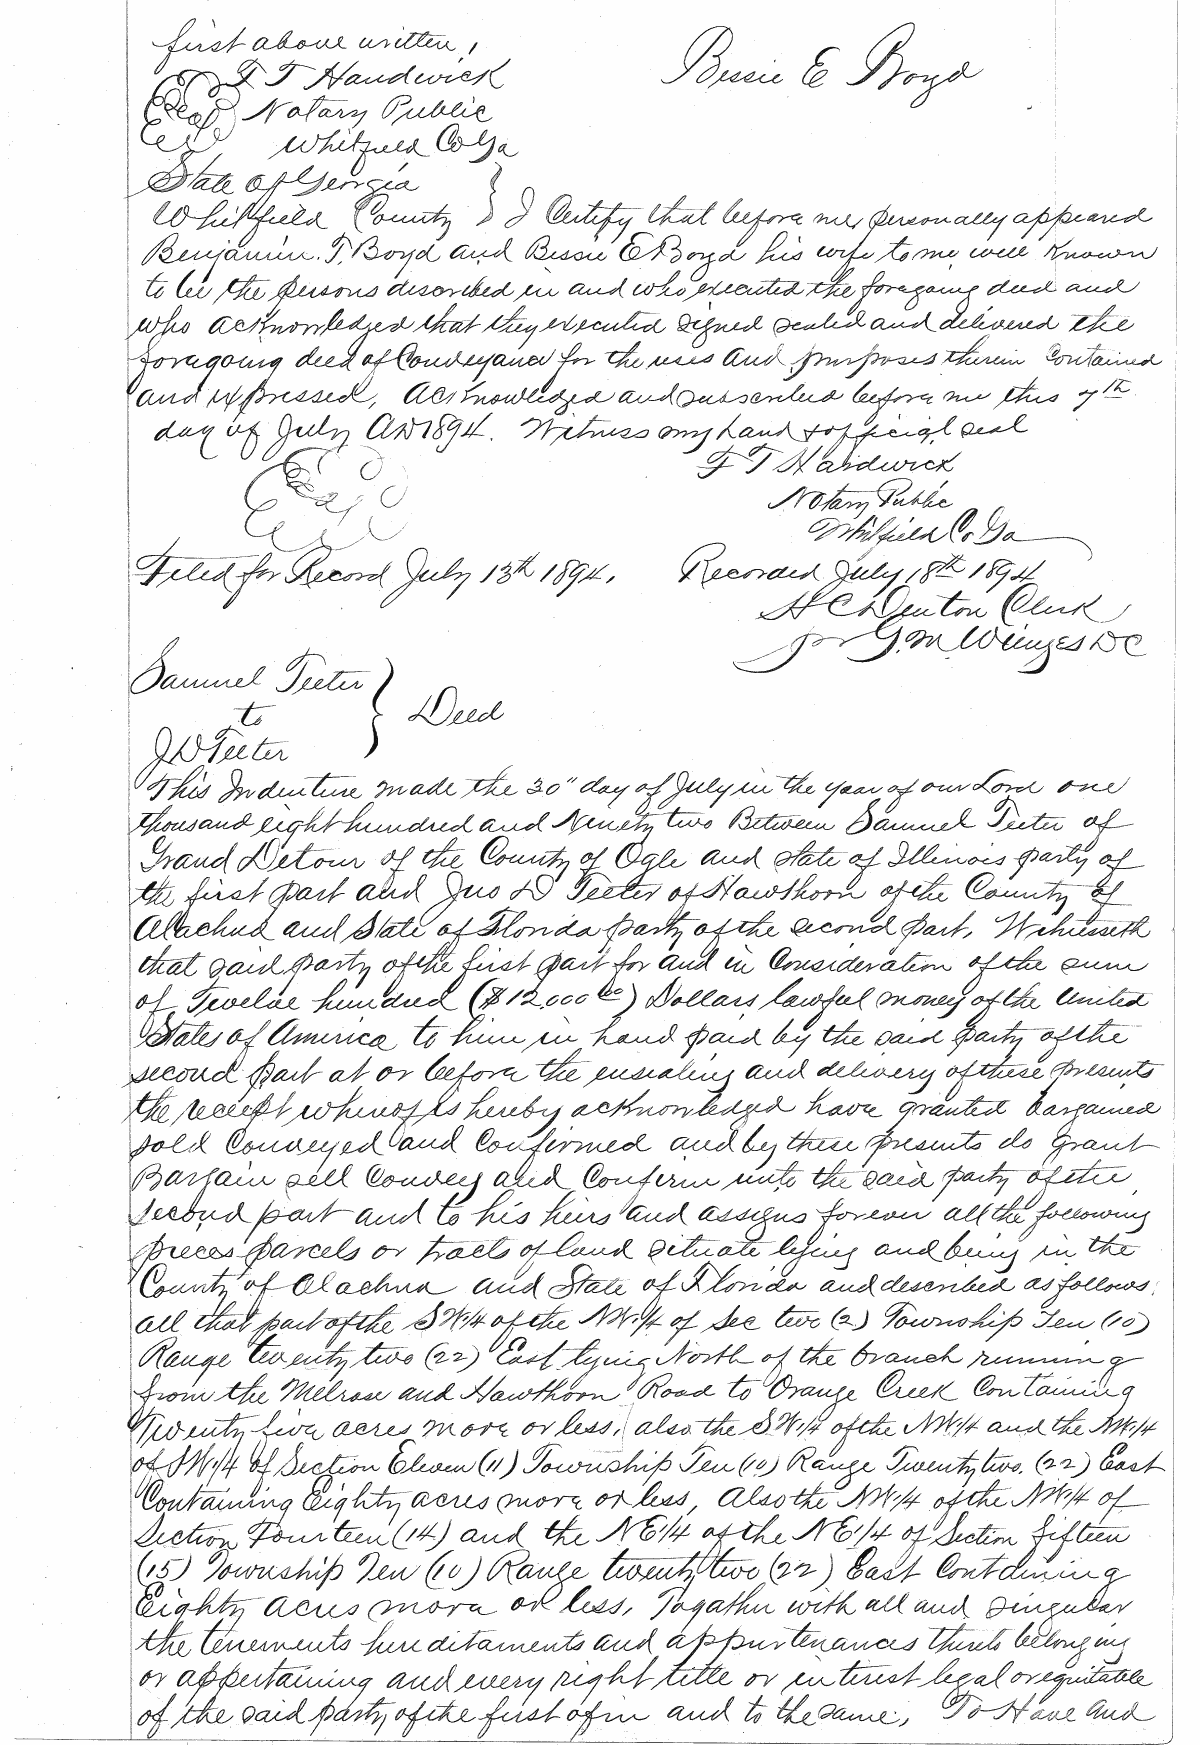 first above written,
F T Hardwick Bessie E Boyd
Seal Notary Public
Whitfield Co Ga
State of Georgia
Whitfield County } I Certify that before me personally appeared
Benjamin. T. Boyd and Bessie E Boyd his wife to me well Known
to be the persons described in and who executed the foregoing deed and
who acknowledged that they executed signed sealed and delivered the
foregoing deed of Conveyance for the uses and purposes therein Contained
and expressed, Acknowledged and subscribed before me this 7th
day of July AD 1894. Witness my hand & official seal
F T Hardwick
Seal Notary Public
Whitfield Co Ga
Filed for Record July 13th 1894. Recorded July 18th 1894
H C Denton Clerk
pr G. M. DC
Samuel Teeter }
to } Deed
J D Teeter
This Indenture made the 30" day of July in the year of our Lord one
thousand eight hundred and Ninety two Between Samuel Teeter of
Grand Detour of the County of Ogle and state of Illinois party of
the first part and Jno D Teeter of Hawthorn of the County of
Alachua and State of Florida party of the second part, Witnesseth
that said party of the first part for and in Consideration of the sum
of Twelve hundred ($12.000 00) Dollars, lawful money of the United
States of America to him in hand paid by the said party of the
second part at or before the ensealing and delivery of these presents
the receipt whereof is hereby acknowledged have granted bargained
sold Conveyed and Confirmed and by these presents do grant
Bargain sell Convey and Confirm unto the said party of the
second part and to his heirs and assigns forever all the following
pieces parcels or tracts of land situate lying and being in the
County of Alachua and State of Florida and described as follows,
all that part of the SW1/4 of the NW1/4 of Sec two (2) Township Ten (10)
Range twenty two (22) East lying North of the branch running
from the Melrose and Hawthorn Road to Orange Creek Containing
Twenty five acres more or less, also the SW1/4 of the NW1/4 and the NW1/4
of SW1/4 of Section Eleven (11) Township Ten (10) Range Twenty two. (22) East
Containing Eighty acres more or less, Also the NW1/4 of the NW1/4 of
Section Fourteen (14) and the NE1/4 of the NE1/4 of Section fifteen
(15) Township Ten (10) Range twenty two (22) East Containing
Eighty acres more or less, Together with all and singular
the tenements hereditaments and appurtenances thereto belonging
or appertaining and every right title or interest legal or equitable
of the said party of the first of in and to the same, To Have and